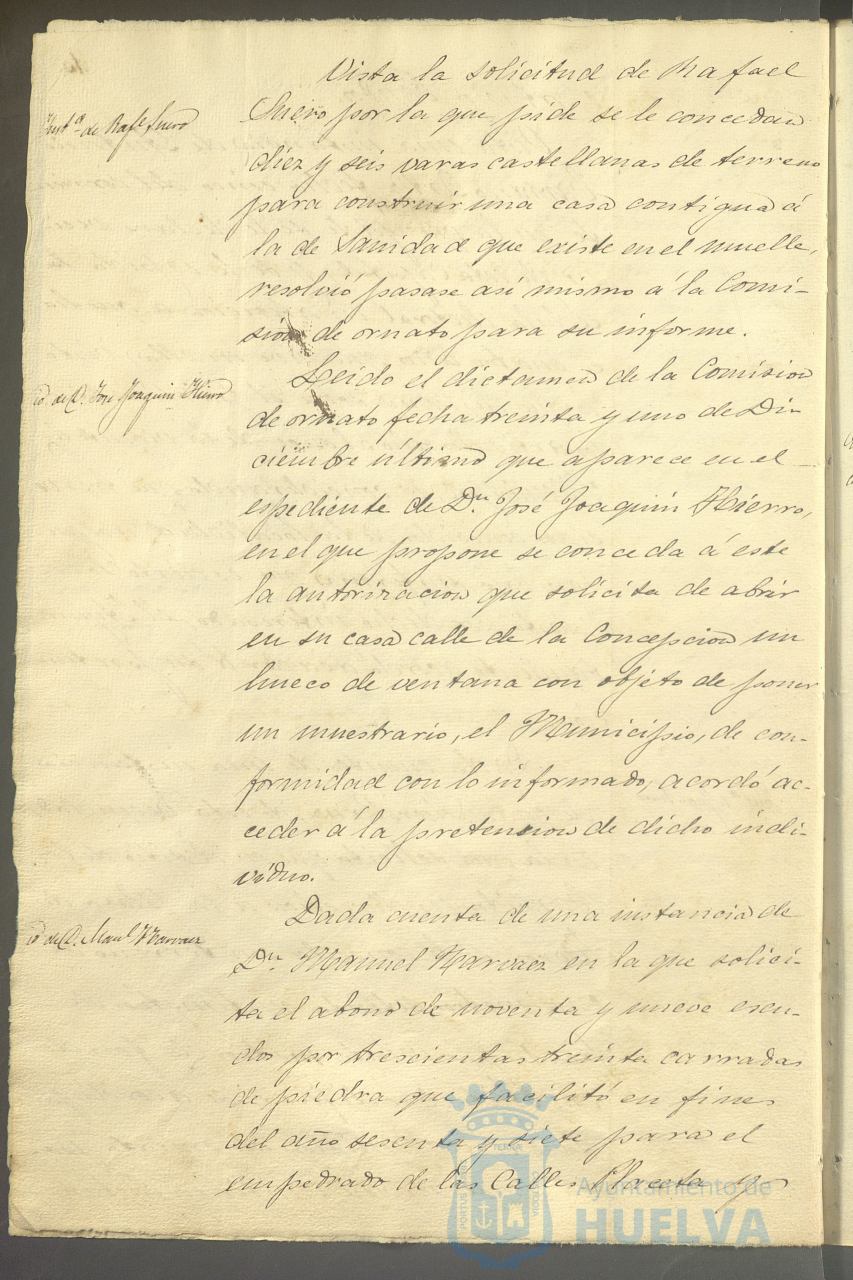 Vista la solicitud de Rafael
Inst.ª de Raf.l Suero
Suero por la que pide se le concedan
diez y seis varas castellanas de terreno
para construir una casa contigua á
la de Sanidad que existe en el muelle,
resolvió pasase asi mismo á la Comi-
sion de ornato para su informe.
Leido el dictamen de la Comision
id de D. Jose Joaquin Hierro
de ornato fecha treinta y uno de Di-
ciembre último que aparece en el
espediente de Dn. José Joaquin Hierro,
en el que propone se conceda á este
la autorizacion que solicita de abrir
en su casa calle de la Concepcion un
hueco de ventana con objeto de poner
un muestrario, el Municipio, de con-
formidad con lo informado, acordó ac-
ceder á la pretension de dicho indi-
viduo.
Dada cuenta de una instancia de
id de D. Manl. Narvaez
Dn. Manuel Narvaez en la que solici-
ta el abono de noventa y nueve escu-
dos por trescientas treinta carradas
de piedra que facilitó en fines
del año sesenta y siete para el
empedrado de las Calles Placeta y
Ayuntamiento de
HUELVA